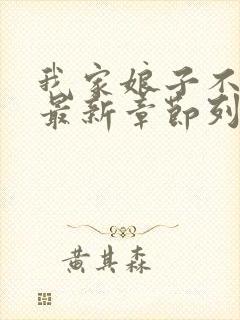 我家娘子不
最新章節列
黄其森